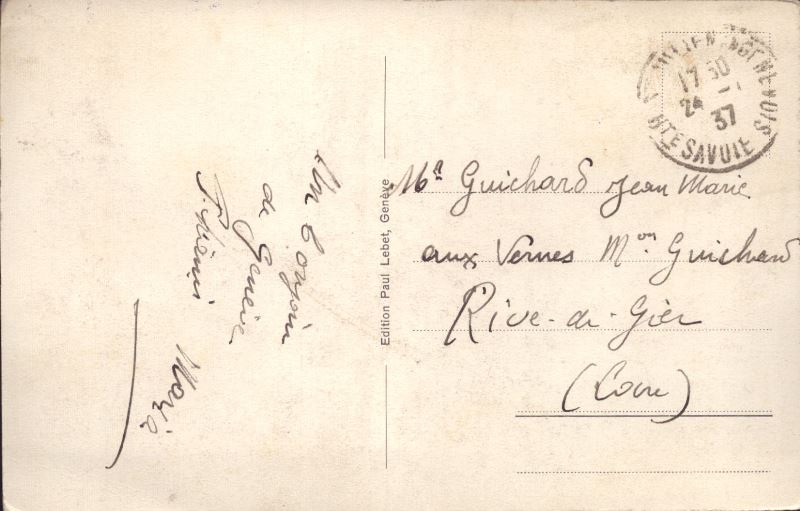 Un bonjour
de Genève
Marie
Edition Paul Lebet, Genève
17 30
24 - 37
HTE SAVOIE
Mr Guichard Jean Marie
aux Vernes Mon Guichard
Rive-de-Gier
(Loire)